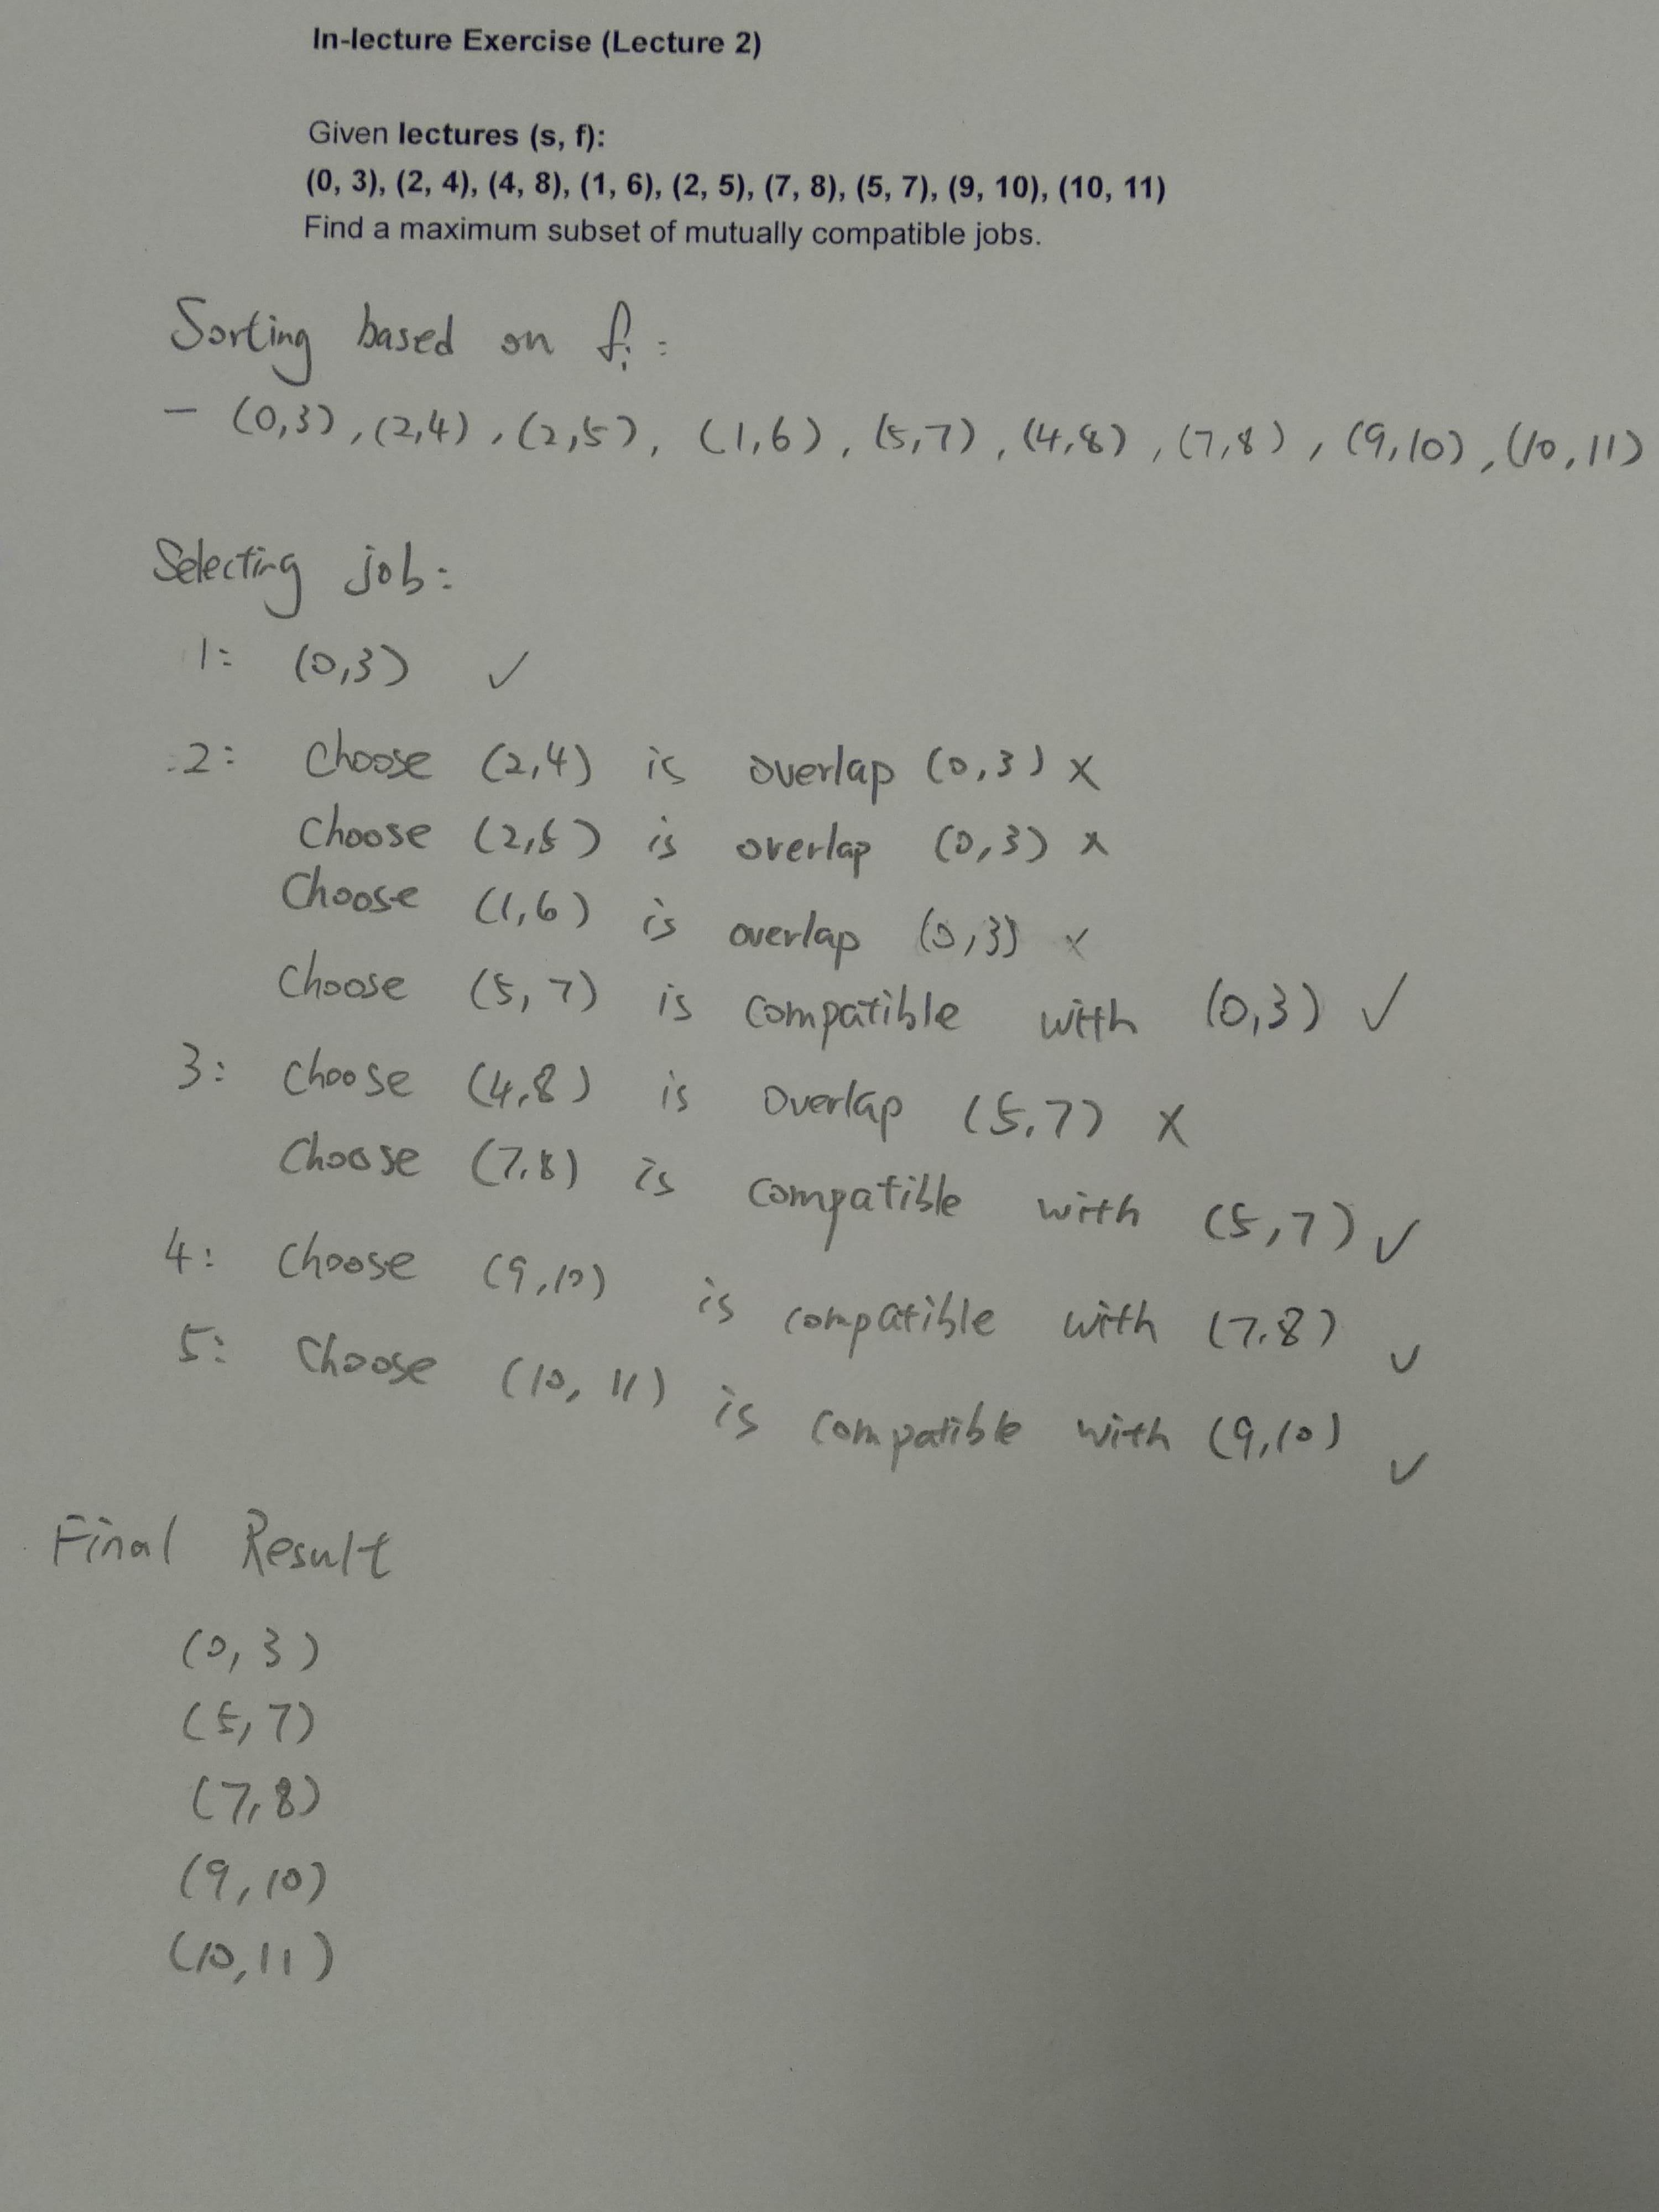 In-lecture Exercise (Lecture 2)
Given lectures (s, f):
(0, 3), (2, 4), (4, 8), (1, 6), (2, 5), (7, 8), (5, 7), (9, 10), (10, 11)
Find a maximum subset of mutually compatible jobs.
Sorting based on fi:
- (0,3), (2,4), (2,5), (1,6), (5,7), (4,8), (7,8), (9,10), (10,11)
Selecting job:
1: (0,3) ✓
2: Choose (2,4) is overlap (0,3) ×
Choose (2,5) is overlap (0,3) ×
Choose (1,6) is overlap (0,3) ×
Choose (5,7) is compatible with (0,3) ✓
3: Choose (4,8) is overlap (5,7) ×
Choose (7,8) is compatible with (5,7) ✓
4: Choose (9,10) is compatible with (7,8) ✓
5: Choose (10,11) is compatible with (9,10) ✓
Final Result
(0,3)
(5,7)
(7,8)
(9,10)
(10,11)